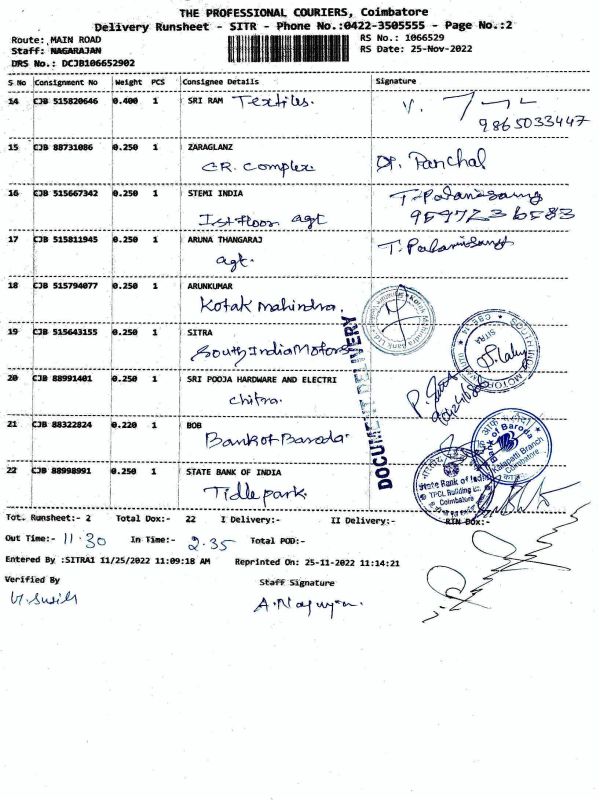 THE PROFESSIONAL COURIERS, Coimbatore
Delivery Runsheet - SITR - Phone No.:0422-3505555 - Page No.:2
Route: MAIN ROAD RS No.: 1066529
Staff: NAGARAJAN RS Date: 25-Nov-2022
DRS No.: DCJB106652902
S No Consignment No Weight PCS Consignee Details Signature
14 CJB 515820646 0.400 1 SRI RAM Textiles.
9865033447
15 CJB 88731086 0.250 1 ZARAGLANZ
G.R. Complex Panchal
16 CJB 515667342 0.250 1 STEMI INDIA T. Palanisamy
Ist Floor agt
17 CJB 515811945 0.250 1 ARUNA THANGARAJ T. Palanisamy
agt.
18 CJB 515794077 0.250 1 ARUNKUMAR
Kotak mahindra.
19 CJB 515643155 0.250 1 SITRA
South India Motors
20 CJB 88991401 0.250 1 SRI POOJA HARDWARE AND ELECTRI
chitra.
21 CJB 88322824 0.220 1 BOB
Bank of Baroda
22 CJB 88998991 0.250 1 STATE BANK OF INDIA
Tidle park.
DOCUMENT DELIVERY
SITRA
Bank of Baroda
Kalapatti Branch
Coimbatore
State Bank of India
TPCL Building
Coimbatore
Tot. Runsheet:- 2 Total Dox:- 22 I Delivery:- II Delivery:- RTN Dox:-
Out Time:- 11.30 In Time:- 2.35 Total POD:-
Entered By :SITRA1 11/25/2022 11:09:18 AM Reprinted On: 25-11-2022 11:14:21
Verified By Staff Signature